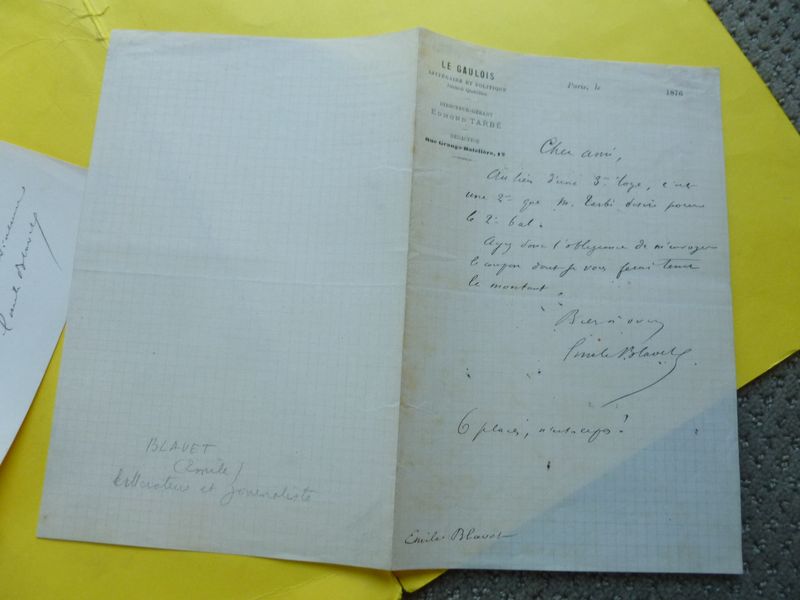 LE GAULOIS
LITTÉRAIRE ET POLITIQUE
Journal Quotidien
DIRECTEUR-GÉRANT
EDMOND TARBÉ
RÉDACTION
Rue Grange-Batelière, 12
Paris, le 1876
Cher ami,
Au lieu d'une 3me loge, c'est
une 2me que M. Tarbé désire pour
le 2me bal.
Ayez donc l'obligeance de m'envoyer
le coupon dont je vous ferai tenir
le montant.
Bien à vous
Emile Blavet
6 places, n'est-ce pas!
Emile Blavet
BLAVET
(Emile)
littérateur et journaliste
Emile Blavet